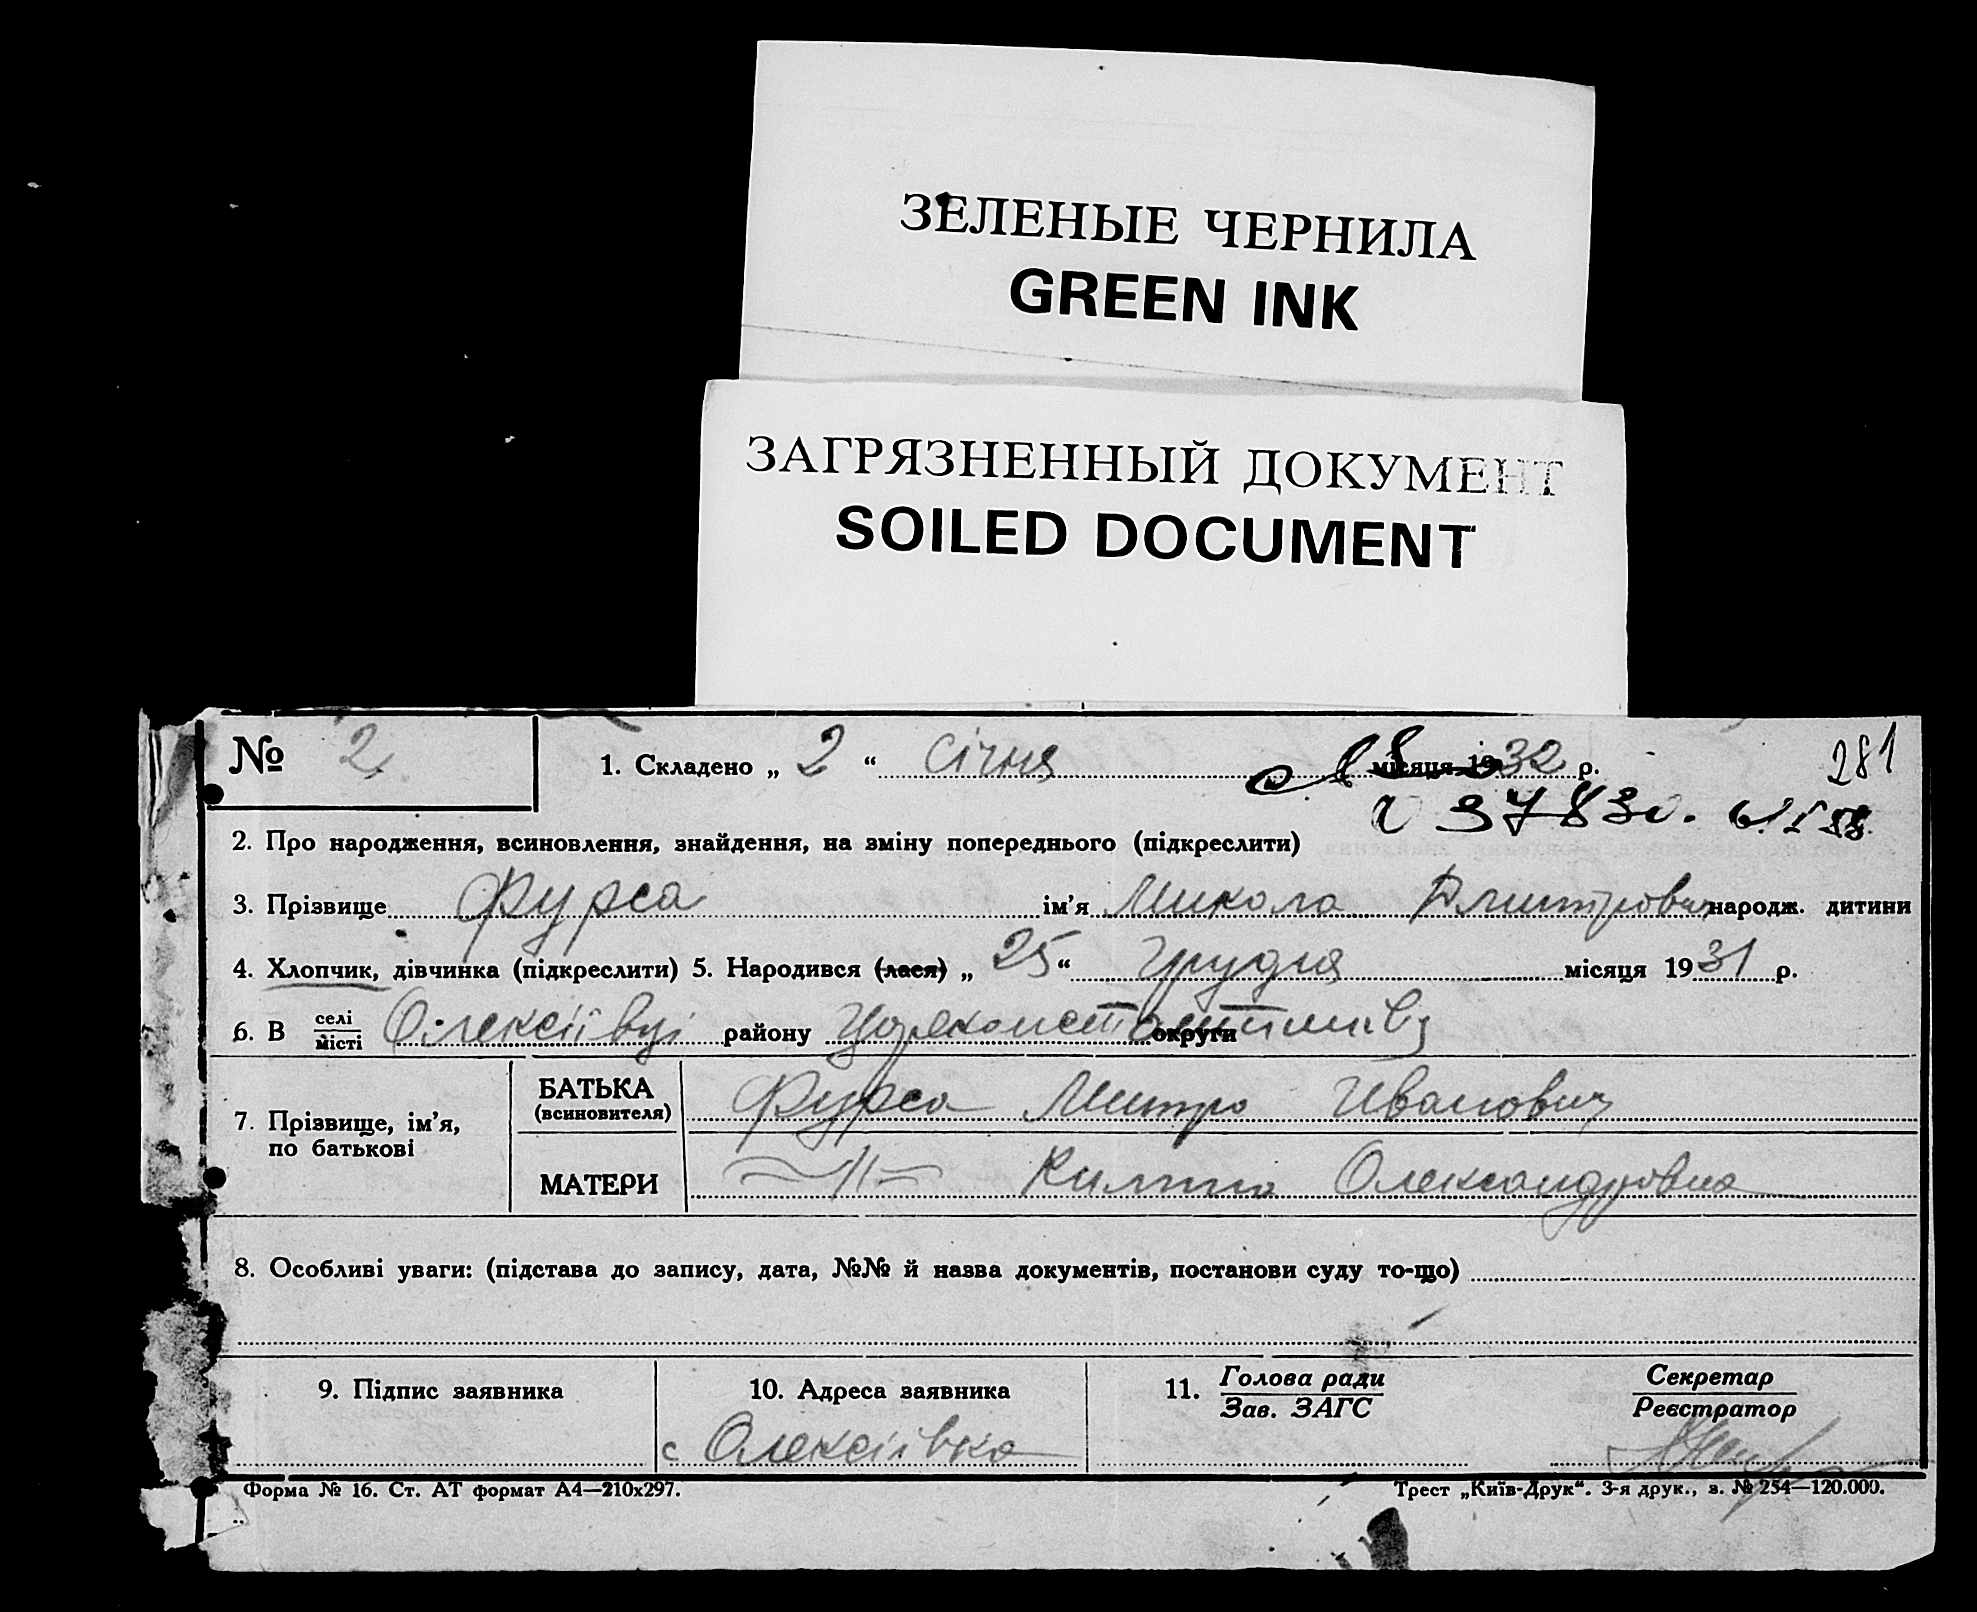 ЗЕЛЕНЫЕ ЧЕРНИЛА
GREEN INK
ЗАГРЯЗНЕННЫЙ ДОКУМЕНТ
SOILED DOCUMENT
№ 2 1. Складено „ 2 “ січня місяця 1932 р. 281
2. Про народження, всиновлення, знайдення, на зміну попереднього (підкреслити)
3. Прізвище Фурса ім’я Микола Дмитрович народж. дитини
4. Хлопчик, дівчинка (підкреслити) 5. Народився (лася) „ 25 “ Грудня місяця 1931 р.
6. В селі Олексіївці району округи
місті
7. Прізвище, ім’я, по батькові
БАТЬКА Фурса Митро Иванович
(всиновителя)
МАТЕРИ —//— Олександровна
8. Особливі уваги: (підстава до запису, дата, №№ й назва документів, постанови суду то-що)
9. Підпис заявника 10. Адреса заявника 11. Голова ради Секретар
Зав. ЗАГС Реєстратор
с Олексіївка
Форма № 16. Ст. АТ формат А4—210х297. Трест „Київ-Друк“. 3-я друк., з. № 254—120.000.